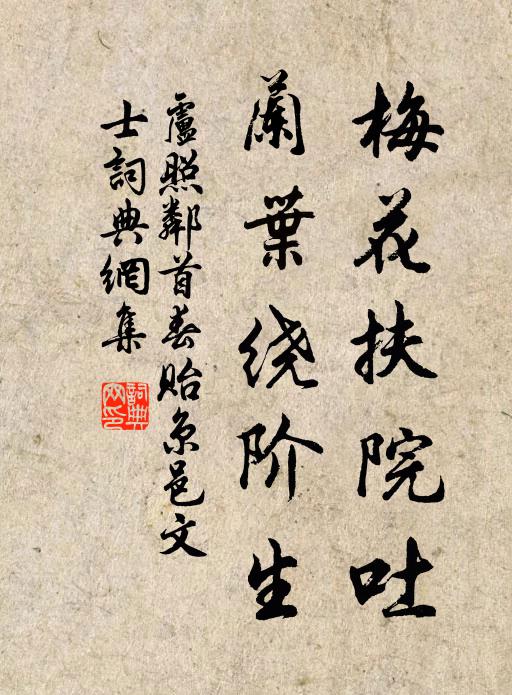 梅花扶院吐
蘭葉绕阶生
盧照鄰首春貽京邑文
士詞典網集
詞典網印